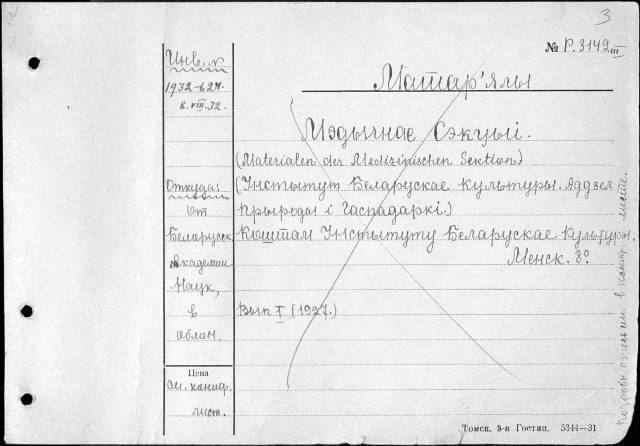 3
№ Р. 3142 III
Инв. №
1932-627.
8. VIII. 32.
Матар'ялы
Мэдычнае Сэкцыі.
(Materialen der Medizinischen Sektion)
Откуда:
от
Беларусск
Академии
Наук,
в
обмен.
(Інстытут Беларускае Культуры. Аддзел
Прыроды і Гаспадаркі.)
Коштам Інстытуту Беларускае Культуры.
Менск. 8º
Вып I (1927.)
Цена
см. канцр.
лист.
подробн. описьсм. в канцр. листе.
Томск. 3-я Гостип. 5344—31